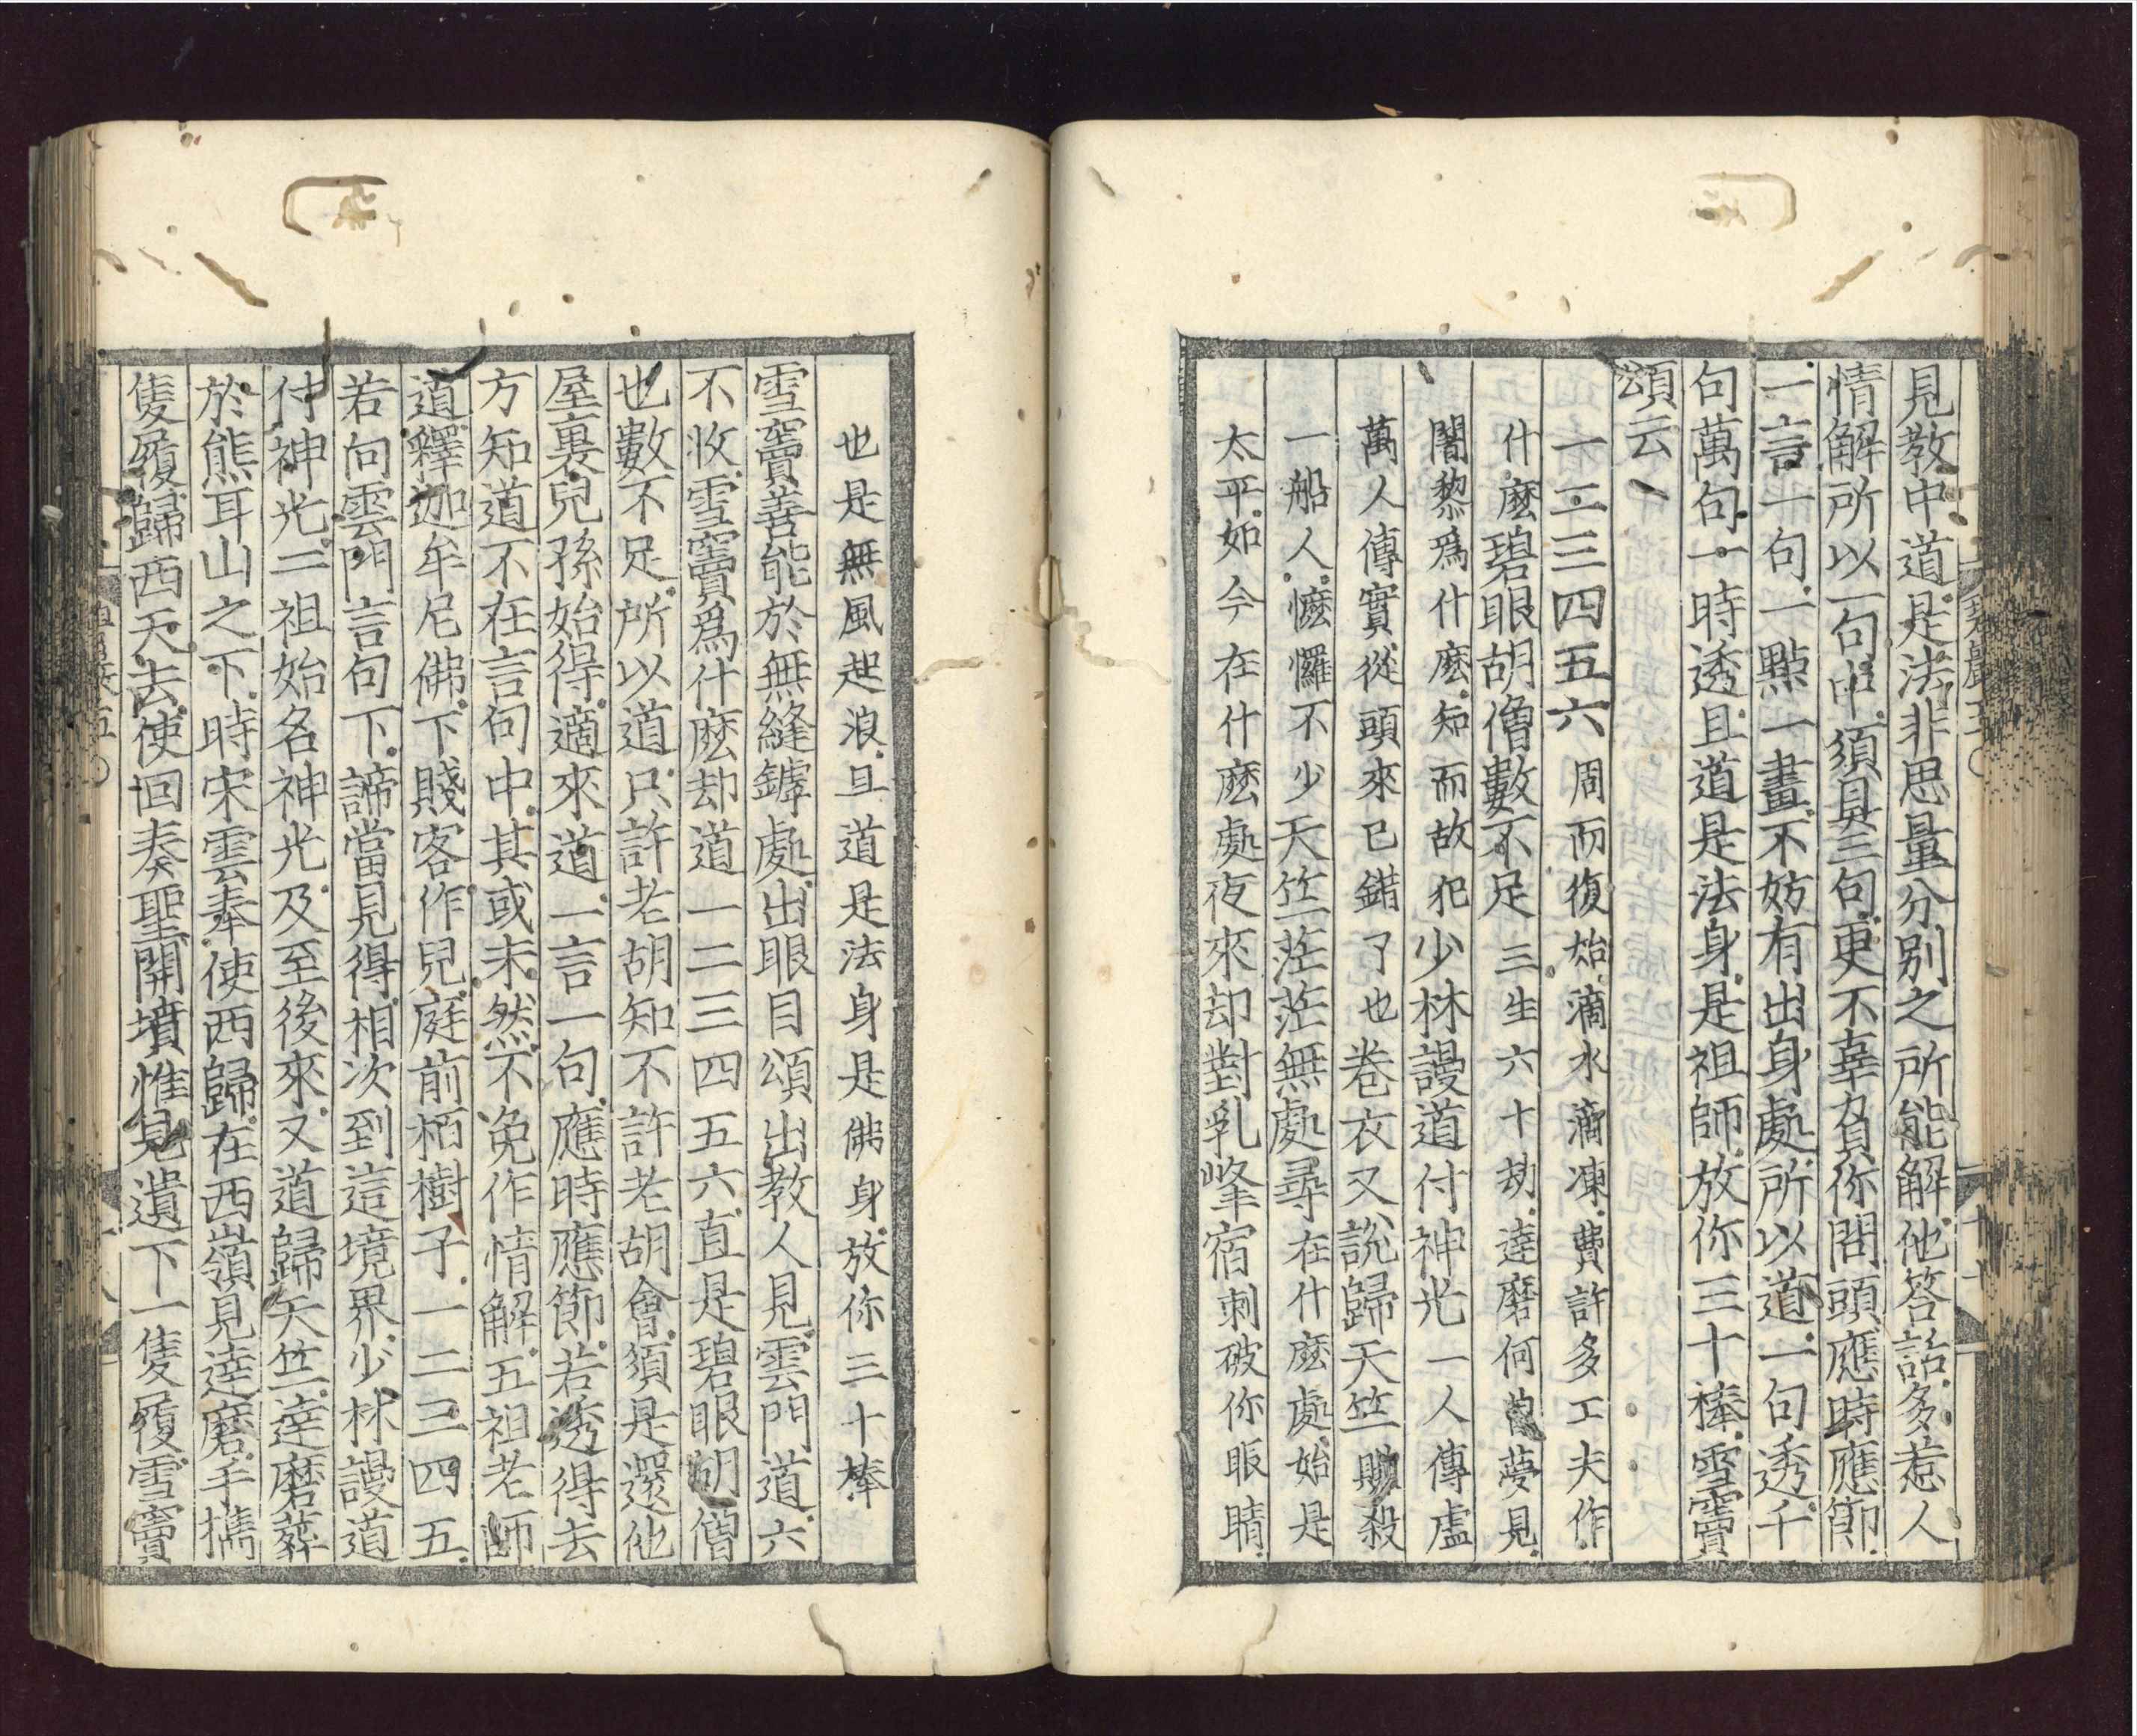 見教中道是法非思量分別之所能解他答話多惹人
情解所以一句中須具三句更不辜負你問頭應時應節
一言一句一點一畫不妨有出身處所以道一句透千
句萬句一時透且道是法身是祖師放你三十棒雪竇
頌云
一二三四五六周而復始滴水滴凍費許多工夫作
什麼碧眼胡僧數不足三生六十劫達磨何曾夢見
闍黎爲什麼知而故犯少林謾道付神光一人傳虛
萬人傳實從頭來已錯了也卷衣又說歸天竺賺殺
一船人懡㦬不少天竺茫茫無處尋在什麼處始是
太平如今在什麼處夜來却對乳峰宿刺破你眼睛
也是無風起浪且道是法身是佛身放你三十棒
雪竇善能於無縫罅處出眼目頌出教人見雲門道六
不收雪竇爲什麼却道一二三四五六直是碧眼胡僧
也數不足所以道只許老胡知不許老胡會須是還他
屋裏兒孫始得適來道一言一句應時應節若透得去
方知道不在言句中其或未然不免作情解五祖老師
道釋迦牟尼佛下賤客作兒庭前栢樹子一二三四五
若向雲門言句下諦當見得相次到這境界少林謾道
付神光二祖始名神光及至後來又道歸天竺達磨葬
於熊耳山之下時宋雲奉使西歸在西嶺見達磨手攜
隻履歸西天去使回奏聖開墳惟見遺下一隻履雪竇